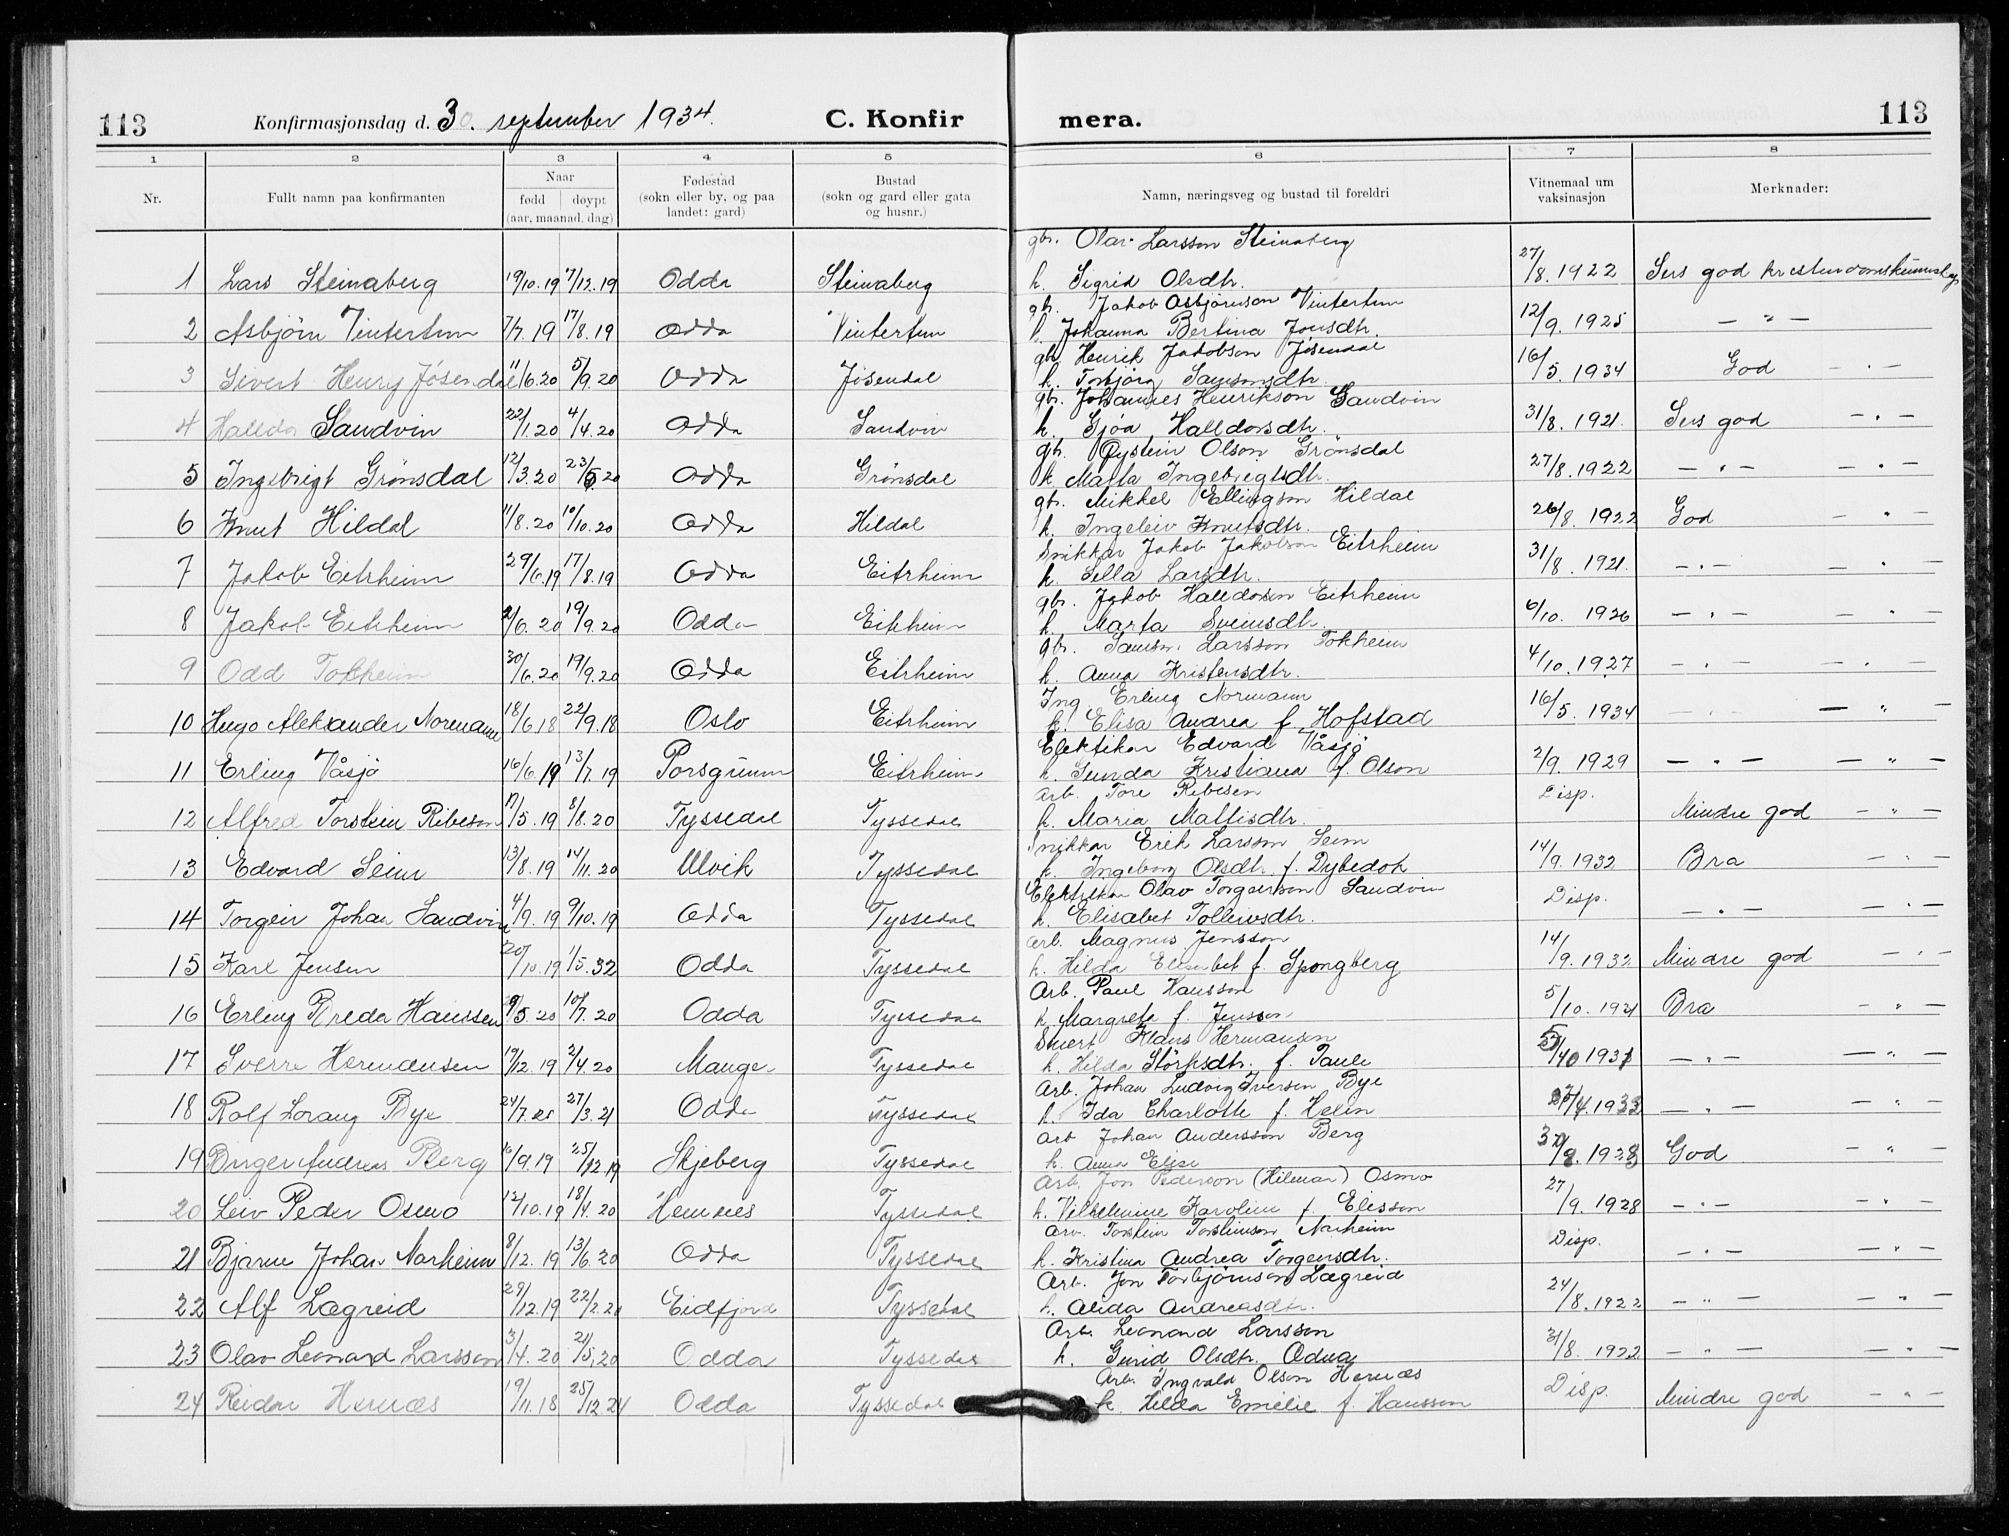 113 Konfirmasjonsdag d. 30. september 1934. C. Konfir mera. 113
1 2 3 4 5 6 7 8
Nr. Fullt namn paa konfirmanten Naar fødd døypt (aar, maanad, dag) Fødestad (sokn eller by, og paa landet: gard) Bustad (sokn og gard eller gata og husnr.) Namn, næringsveg og bustad til foreldri Vitnemaal um vaksinasjon Merknader:
gbr. Olav Larsson Steinaberg
1 Lars Steinaberg 19/10.19 7/12.19 Odda Steinaberg k. Sigrid Olsdtr. 27/8.1922 Sers god kristendomskunnskap
gbr. Jakob Asbjørnson Vintertun
2 Asbjørn Vintertun 7/7.19 17/8.19 Odda Vintertun k. Johanna Bertina Jonsdtr. 12/9.1925 — " —
gbr. Henrik Jakobson Jøsendal
3 Sivert Henry Jøsendal 11/6.20 5/9.20 Odda Jøsendal k. Torbjørg Samsonsdtr. 16/5.1934 God — " —
gbr. Johannes Henrikson Sandvin
4 Halldor Sandvin 22/1.20 4/4.20 Odda Sandvin k. Gjøa Halldorsdtr. 31/8.1921. Sers god — " —
gbr. Øystein Olson Grønsdal
5 Ingebrigt Grønsdal 12/3.20 23/5.20 Odda Grønsdal k Marta Ingebregtsdtr. 27/8.1922 — " — — " —
gbr. Mikkel Ellingson Hildal
6 Knut Hildal 11/8.20 10/10.20 Odda Hildal k. Ingeleiv Knutsdtr. 26/8.1922 God — " —
Snikkar Jakob Jakobson Eitrheim
7 Jakob Eitrheim 29/6.19 17/8.19 Odda Eitrheim k. Sella Larsdtr. 31/8.1921. — " — — " —
gbr. Jakob Halldorson Eitrheim
8 Jakob Eitrheim 2/6.20 19/9.20 Odda Eitrheim k. Marta Sveinsdtr. 6/10.1926 — " — — " —
gbr. Samson Larsson Tokheim
9 Odd Tokheim 30/6.20 19/9.20 Odda Eitrheim k. Anna Kristensdtr. 4/10.1927 — " — — " —
Ing. Erling Normann
10 Hugo Aleksander Normann 18/6.18 22/9.18 Oslo Eitrheim k. Elisa Andrea f. Hofstad 16/5.1934 — " — — " —
Elektikar Edvard Våsjø
11 Erling Våsjø 16/6.19 13/7.19 Porsgrunn Eitrheim k. Gunda Kristiana f. Olson 2/9.1929 — " — — " —
arb. Tore Ribesen
12 Alfred Torstein Ribeson 17/5.19 8/8.20 Tyssedal Tyssedal k. Maria Mattisdtr. Disp. Mindre god — " —
Snikkar Erik Larsson Seim
13 Edvard Seim 13/8.19 14/11.20 Ulvik Tyssedal k. Ingeborg Olsdtr. f. Dybedok 14/9.1932 Bra — " —
Elektrikar Olav Torgeirson Sandvin
14 Torgeir Johan Sandvin 4/9.19 9/10.19 Odda Tyssedal k. Elisabet Tolleivsdtr. Disp. — " — — " —
arb. Magnus Jensson
15 Karl Jensen 20/10.19 1/5.32 Odda Tyssedal k. Hilda Elisabet f. Spongberg 14/9.1932 Mindre god — " —
Arb. Paul Hansson
16 Erling Reidar Hanssen 9/5.20 10/7.20 Odda Tyssedal k Margreta f. Jensson 5/10.1931 Bra — " —
Stuert Klaus Hermansen
17 Sverre Hermansen 17/12.19 2/4.20 Manger Tyssedal k. Hilda Størksdtr. f. Paule 5/10 1931 — " — — " —
Arb. Johan Ludvig Iversen Bye
18 Rolf Lorang Bye 24/7.20 27/3.21 Odda Tyssedal k. Ida Charlotte f. Helin 27/4.1933 — " — — " —
arb Johan Andersson Berg
19 Birger Andreas Berg 16/9.19 25/12.19 Skjeberg Tyssedal k. Anna Elise 30/8.1928 God — " —
Arb. Jon Pederson (Hilmar) Osmo
20 Leiv Peder Osmo 12/10.19 18/4.20 Hemnes Tyssedal k. Vilhelmine Karoline f. Elisson 27/9.1928 — " — — " —
Arb. Torstein Torsteinson Narheim
21 Bjarne Johan Narheim 8/12.19 13/6.20 Odda Tyssedal k. Kristina Andrea Torgersdtr. Disp. — " — — " —
Arb. Jon Torbjørnson Lægreid
22 Alf Lægreid 29/12.19 22/2.20 Eidfjord Tyssedal k. Alida Andreasdtr. 24/8.1922 — " — — " —
Arb. Leonard Larsson
23 Olav Leonard Larsson 3/4.20 21/5.20 Odda Tyssedal k. Gurid Olsdtr. Odda 31/8.1922 — " — — " —
Arb. Ingvald Olson Hernæs
24 Reidar Hernæs 19/11.18 25/12.24 Odda Tyssedal k. Hilda Emelie f. Hansson Disp. Mindre god — " —